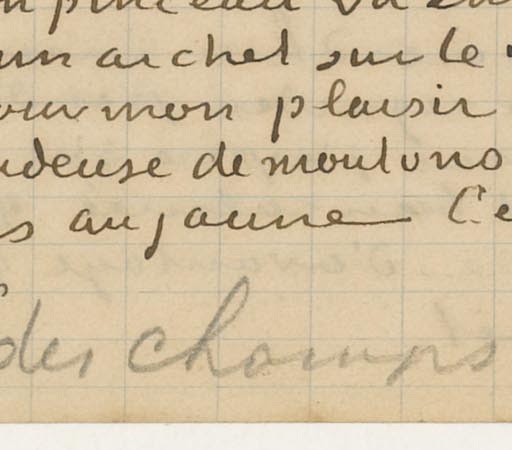 pinceau va
un archet sur le
our mon plaisir
ndeuse de moutons
s au jaune Ce
des champs